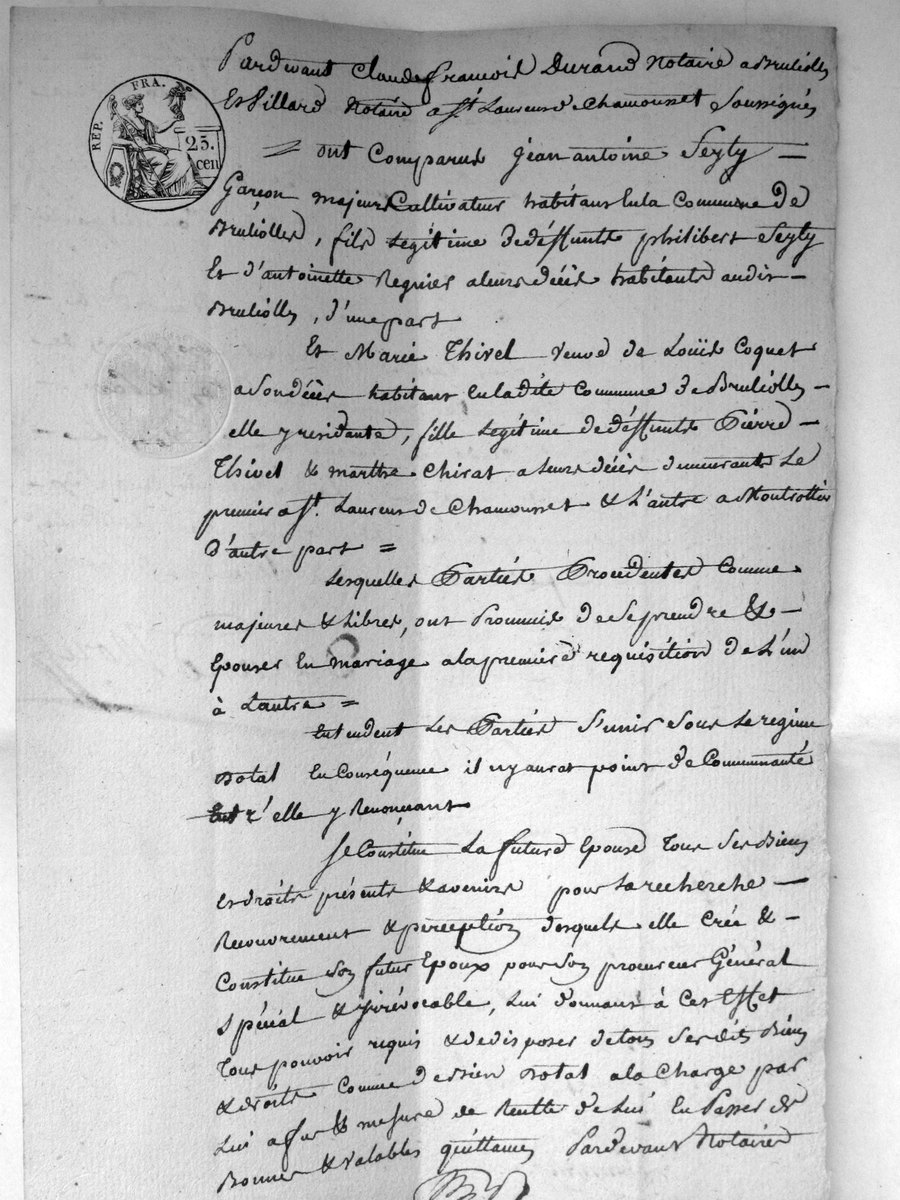 REP. FRA.
25.
cen
Pardevant Claude francois Durand Notaire a Bruliolles
Et Villard Notaire a St. Laurent de Chamousset Soussignés
= ont Comparus jean antoine Seyty —
Garçon majeur Cultivateur habitant En la Commune de
Bruliolles, fils Legitime de deffunts philibert Seyty
Et d'antoinette Regnier a leurs décès habitants audit —
Bruliolles, d'une part
Et Marie Thivel veuve de Louïs Coquet
a Son décès habitant En ladite Commune de Bruliolles —
elle y residante, fille Legitime de deffunts Pierre —
Thivel & marthe Chirat a leurs décès demeurants Le
premier a St. Laurent de Chamousset & L'autre a Montrottier
d'autre part =
Lesquelles Parties Procedentes Comme
majeures & Libres, ont Promis de Se prendre & —
Epouser En mariage a la premiere requisition de L'un
à Lautre =
Entendent Les Parties S'unir Sous Le regime
Dotal En Conséquence il ny aurat point de Communauté
Entr'elle y Renonçant
Se Constitue La future Epouse Tous Ses Biens
et droits présents & avenirs pour La recherche —
Recouvrement & perception desquels elle Crée & —
Constitue Son futur Epoux pour Son procureur Général
Spécial & jrrévocable, Lui donnant à Cet Effet
Tous pouvoir requis & de disposer de tous Ses dits Biens
& droits Comme de Bien Dotal a la Charge par
Lui a fur & mesure de Recette de Lui En Passer de
Bonnes & valables quittances Pardevant Notaire